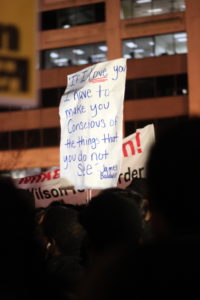 "If I love you
I have to
make you
Conscious of
the things that
you do not
see"
James
Baldwin
n!
Wilson
rder